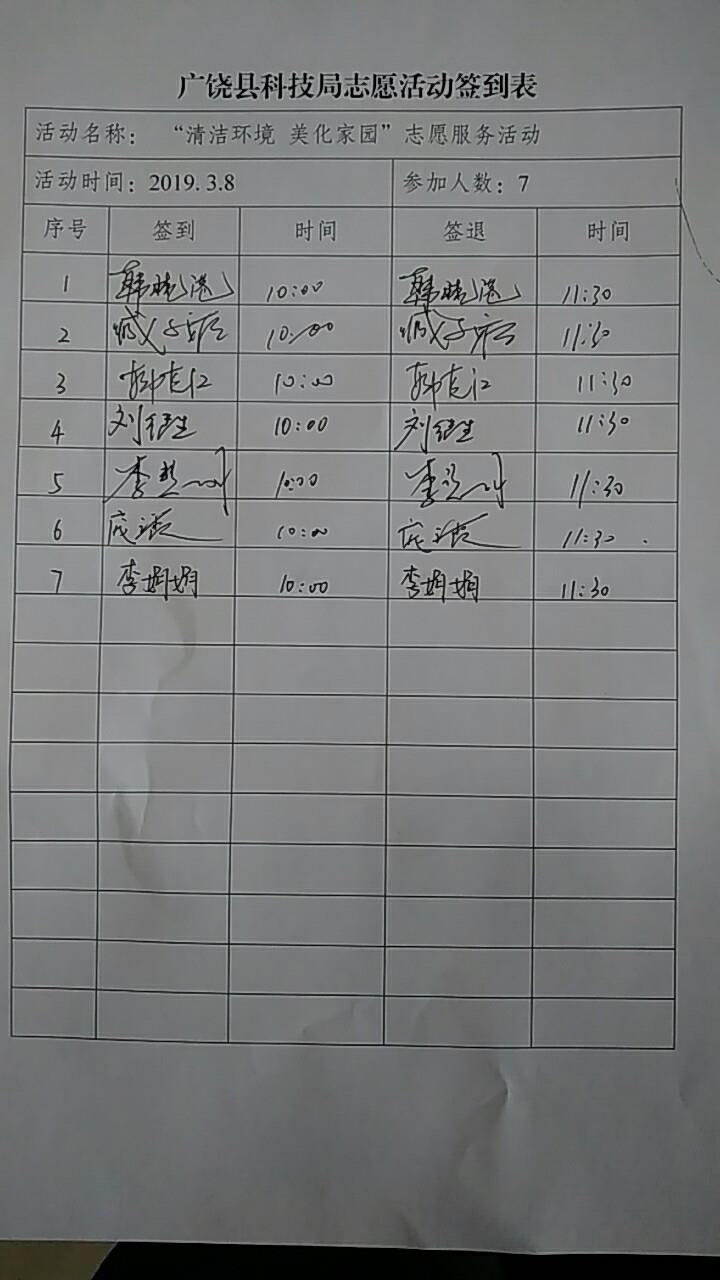 广饶县科技局志愿活动签到表
活动名称： “清洁环境 美化家园”志愿服务活动
活动时间：2019.3.8 参加人数：7
序号 签到 时间 签退 时间
1 韩晓港 10:00 韩晓港 11:30
2 10:00 11:30
3 10:00 11:30
4 刘 10:00 刘 11:30
5 李 10:00 李 11:30
6 10:00 11:30
7 李娟娟 10:00 李娟娟 11:30